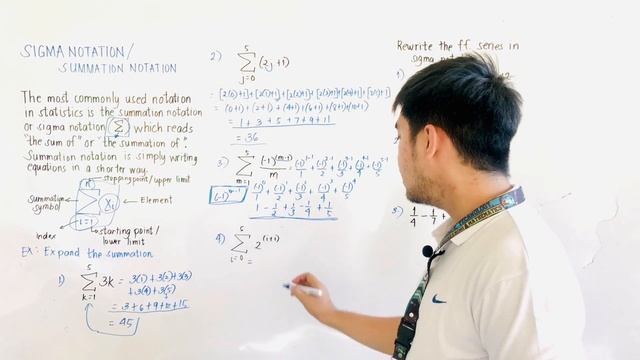 SIGMA NOTATION/
SUMMATION NOTATION
The most commonly used notation
in statistics is the summation notation
or sigma notation Σ which reads
"the sum of" or "the summation of".
Summation notation is simply writing
equations in a shorter way.
n stopping point/upper limit
Summation symbol Σ xᵢ Element
Index i=1 starting point/
lower limit
EX: Expand the summation
1) 5 Σ k=1 3k = 3(1)+3(2)+3(3)
+3(4)+3(5)
= 3+6+9+12+15
= 45
2) 5 Σ j=0 (2j+1)
= [2(0)+1]+[2(1)+1]+[2(2)+1]+[2(3)+1]+[2(4)+1]+[2(5)+1]
= (0+1)+(2+1)+(4+1)+(6+1)+(8+1)+(10+1)
= 1+3+5+7+9+11
= 36
3) 5 Σ m=1 (-1)^(m-1)/m
1 - 1/2 + 1/3 - 1/4 + 1/5
4) 5 Σ i=0 2^(i+1)
=
Rewrite the ff. series in
sigma
3) 1/4 - 1/7 +